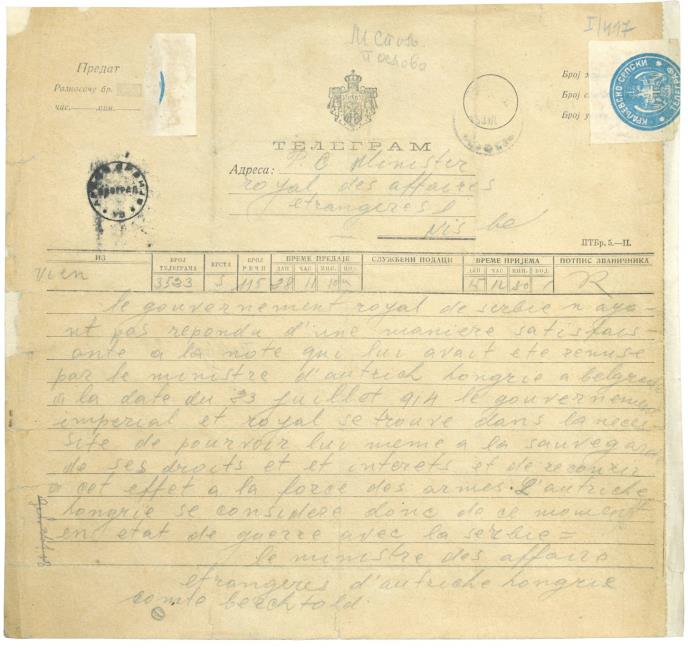 М Стози
послова
I/417
Предат
Разносачу бр.
час. мин.
Број
Број
Број
КРАЉЕВСКО-СРПСКИ
ТЕЛЕГРАМ
Адреса:
P. C Minister
royal des affaires
etrangeres
Nis be
ПТБр. 5.—II.
ИЗ БРОЈ ТЕЛЕГРАМА ВРСТА БРОЈ РЕЧИ ВРЕМЕ ПРЕДАЈЕ СЛУЖБЕНИ ПОДАЦИ ВРЕМЕ ПРИЈЕМА ПОТПИС ЗВАНИЧНИКА
ДАН ЧАС МИН. ДАН ЧАС МИН.
Vien 3523 S 115 28 11 10 12 30
le gouvernement royal de serbie n aya-
nt pas repondu d'une maniere satisfais-
ante a la note qui lui avait ete remise
par le ministre d'autrich hongrie a belgrade
a la date du 23 juillot 914 le gouvernement
imperial et royal se trouve dans la neces
site de pourvoir lui meme a la sauvegar
de ses droits et et interets et de recourir
a cet effet a la force des armes. L'autriche
hongrie se considere donc de ce moment
en etat de guerre avec la serbie =
le ministre des affairs
etrangeres d'autriche hongrie
comte berchtold.